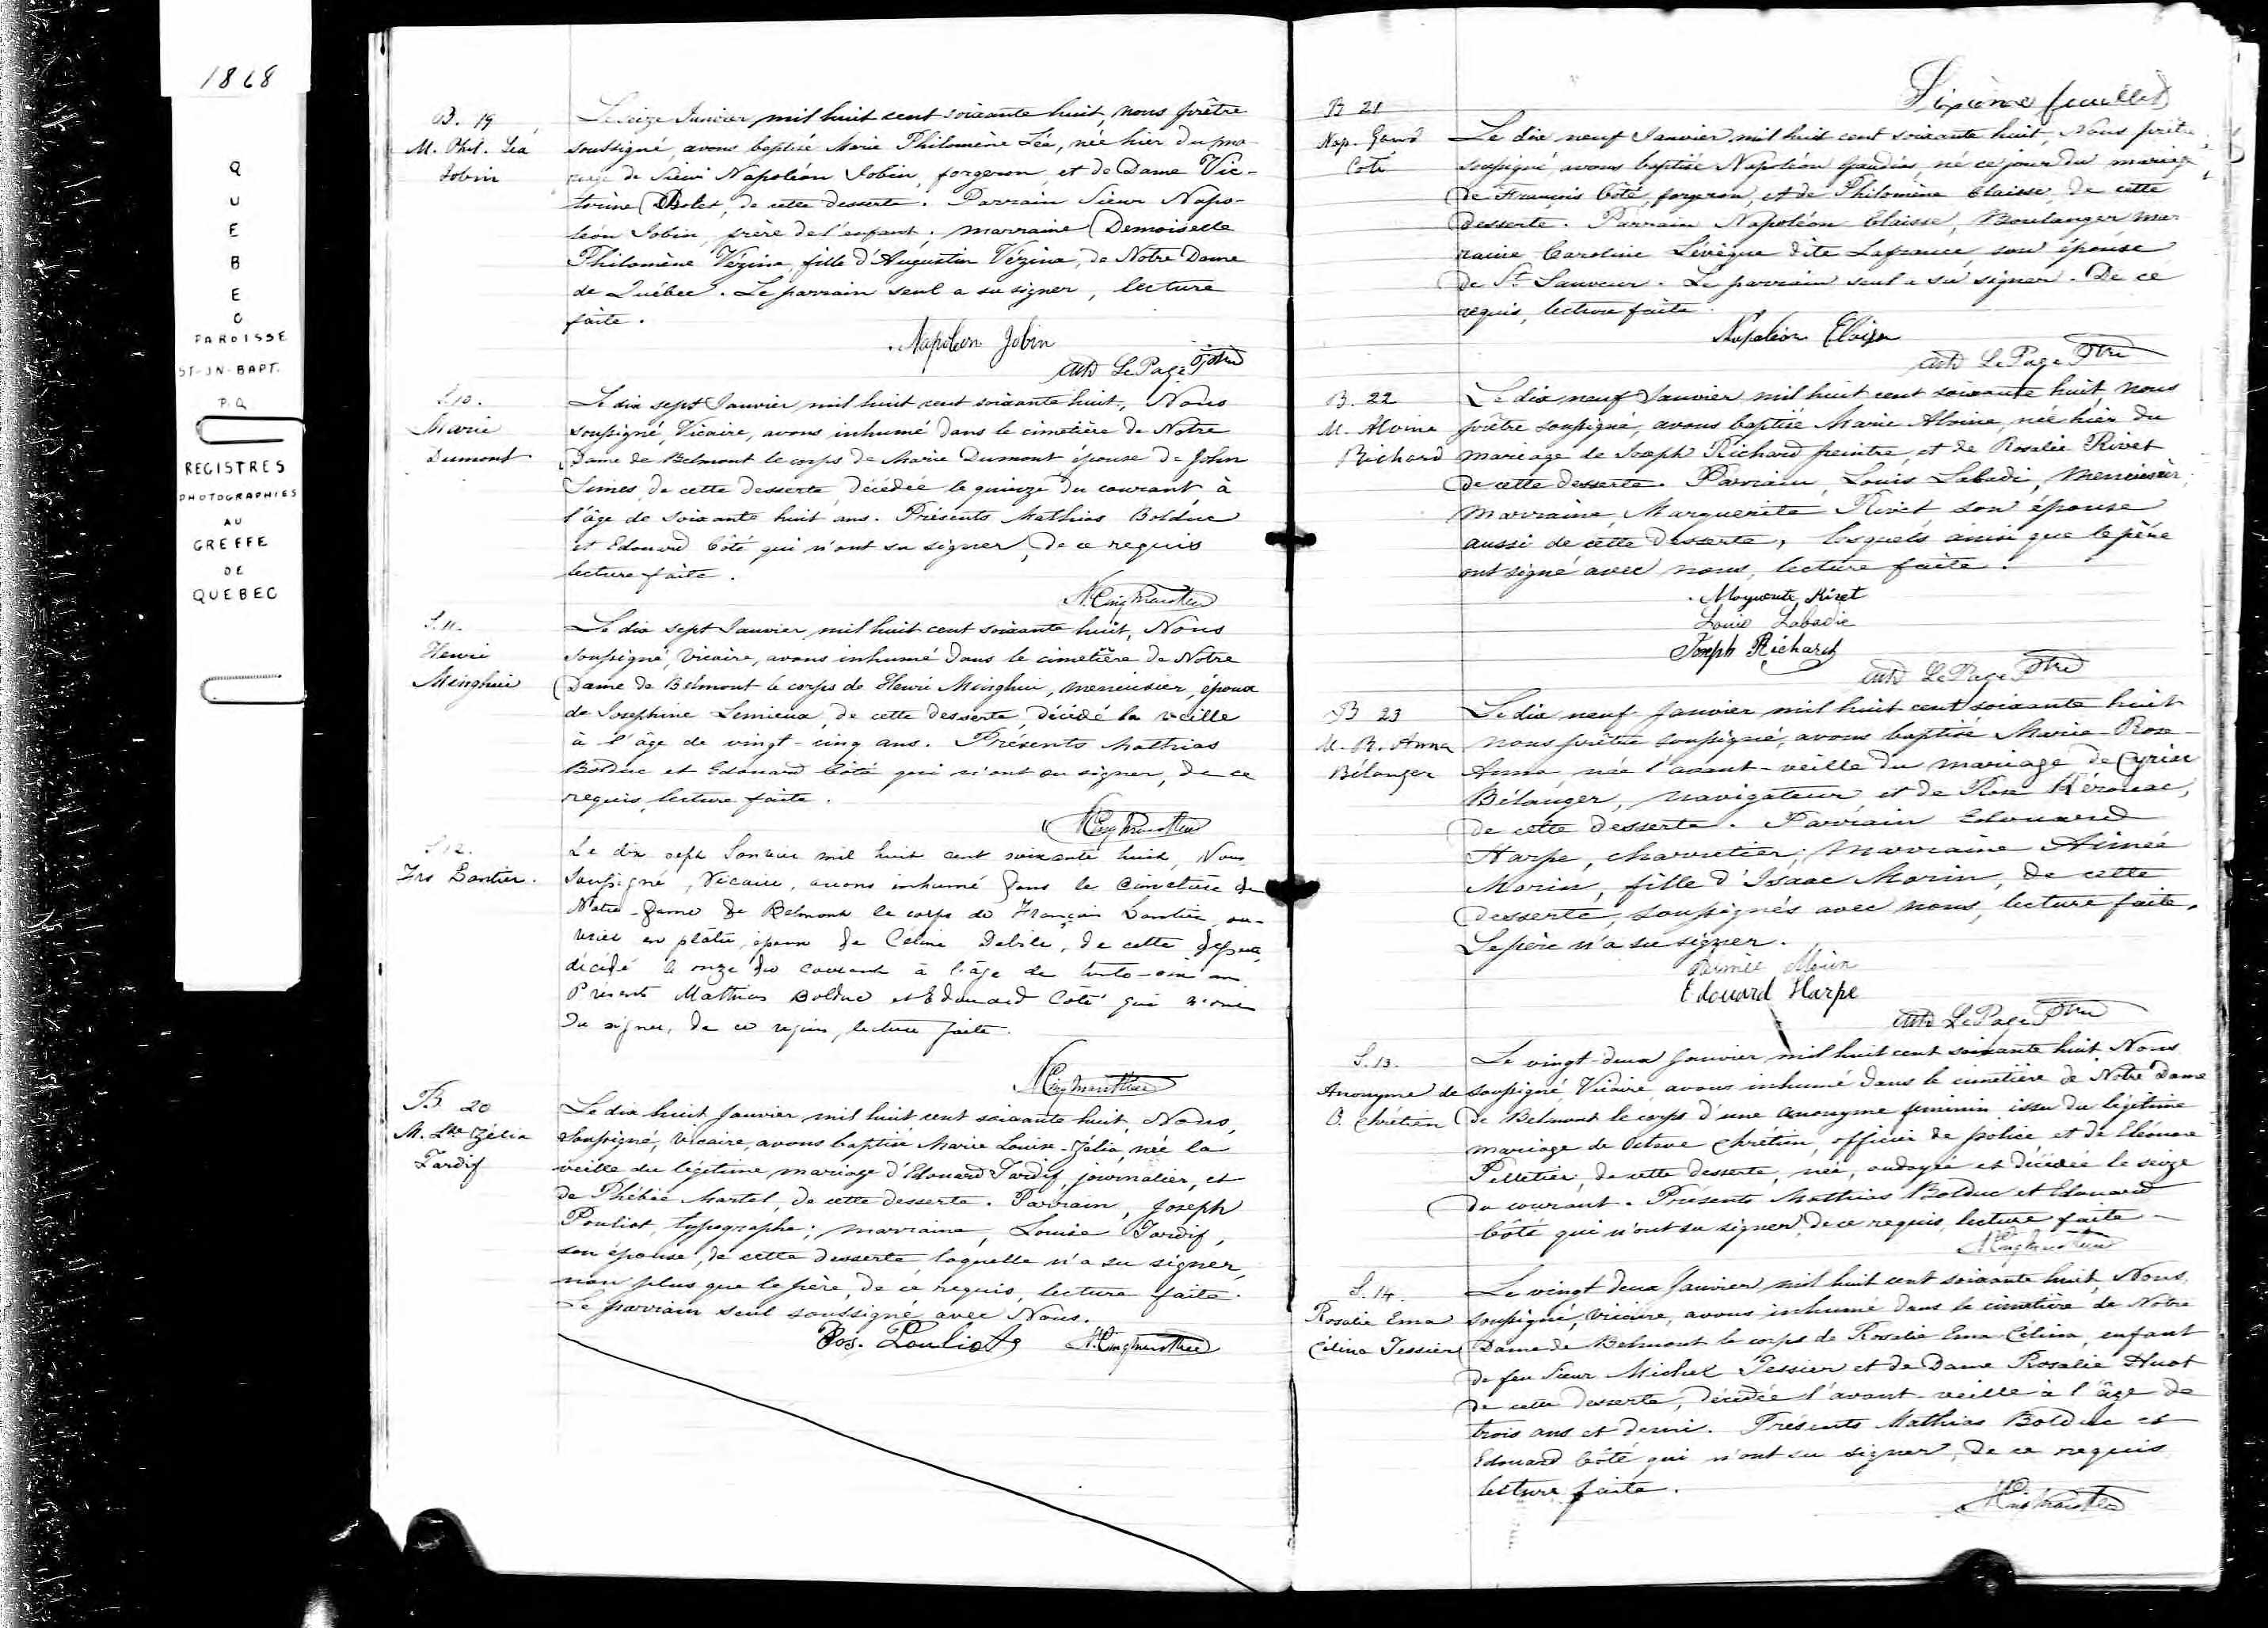 1868
QUEBEC
PAROISSE
ST-JN-BAPT.
P.Q
REGISTRES
PHOTOGRAPHIES
AU
GREFFE
DE
QUEBEC
B. 19
M. Phil. Léa
Jobin
Le seize Janvier mil huit cent soixante huit, nous prêtre
soussigné, avons baptisé Marie Philomène Léa, née hier du ma-
riage de Sieur Napoléon Jobin, forgeron et de Dame Vic-
torine Bolet, de cette desserte. Parrain Sieur Napo-
léon Jobin, frère de l'enfant; marraine Demoiselle
Philomène Vézina, fille d'Augustin Vézina, de Notre Dame
de Québec. Le parrain seul a su signer, lecture
faite.
Napoléon Jobin
Ant. LePage Ptre
S. 10.
Marie
Dumont
Le dix sept Janvier mil huit cent soixante huit, Nous
soussigné, Vicaire, avons inhumé dans le cimetière de Notre
Dame de Belmont le corps de Marie Dumont épouse de John
Simes, de cette desserte, décédée le quinze du courant, à
l'âge de soixante huit ans. Présents Mathias Bolduc
et Edouard Côté qui n'ont su signer, de ce requis
lecture faite.
N. Cinqmars Ptre
S. 11.
Henri
Minghui
Le dix sept Janvier mil huit cent soixante huit, Nous
soussigné, Vicaire, avons inhumé dans le cimetière de Notre
Dame de Belmont le corps de Henri Minghui, menuisier, époux
de Josephine Lemieux, de cette desserte, décédé la veille
à l'âge de vingt-cinq ans. Présents Mathias
Bolduc et Edouard Côté qui n'ont su signer, de ce
requis, lecture faite.
N. Cinqmars Ptre
S. 12.
Frs Lantier.
Le dix sept Janvier mil huit cent soixante huit, Nous
soussigné, Vicaire, avons inhumé dans le cimetière de
Notre-Dame de Belmont le corps de François Lantier, ou-
vrier en plâtre, époux de Céline Delile, de cette desserte,
décédé le onze du courant à l'âge de ans.
Présents Mathias Bolduc et Edouard Côté qui n'ont
su signer, de ce requis, lecture faite.
N. Cinqmars Ptre
B. 20
M. Lse Zélia
Tardif
Le dix huit Janvier mil huit cent soixante huit, Nous,
soussigné, Vicaire, avons baptisé Marie Louise-Zélia, née la
veille du légitime mariage d'Edouard Tardif, journalier, et
de Phébée Martel, de cette desserte. Parrain, Joseph
Pouliot, typographe; marraine, Louise Tardif,
son épouse, de cette desserte, laquelle n'a su signer,
non plus que le père, de ce requis, lecture faite.
Le parrain seul soussigné avec Nous.
Jos. Pouliot N. Cinqmars Ptre
Sixième feuillet
B 21
Nap. Gaud
Coté
Le dix neuf Janvier mil huit cent soixante huit, Nous prêtre
soussigné, avons baptisé Napoléon Gaudias, né ce jour du mariage
de François Côté, forgeron, et de Philomène Claisse, de cette
desserte. Parrain Napoléon Claisse, Boulanger mar-
raine Caroline Lévèque dite Lafrance, son épouse
de St Sauveur. Le parrain seul a su signer. De ce
requis, lecture faite.
Napoléon
Ant. LePage Ptre
B. 22
M. Alvina
Richard
Le dix neuf Janvier mil huit cent soixante huit, nous
prêtre soussigné, avons baptisé Marie Alvina, née hier du
mariage de Joseph Richard peintre, et de Rosalie Rivet
de cette desserte. Parrain, Louis Labadie, Menuisier;
marraine, Marguerite Rivet son épouse
aussi de cette desserte, lesquels ainsi que le père
ont signé avec nous, lecture faite.
Marguerite Rivet
Louis Labadie
Joseph Richard
Ant. LePage Ptre
B 23
M. R. Anna
Bélanger
Le dix neuf Janvier mil huit cent soixante huit
nous prêtre soussigné, avons baptisé Marie-Rose-
Anna née l'avant-veille du mariage de Cyrien
Bélanger, navigateur et de Rose Kérouac,
de cette desserte. Parrain Edouard
Harpe, charretier; Marraine Aimée
Morin, fille d'Isaac Morin, de cette
desserte, soussignés avec nous, lecture faite.
Le père n'a su signer.
Aimée Morin
Edouard Harpe
Ant. LePage Ptre
S. 13.
Anonyme de
O. Chrétien
Le vingt-deux Janvier mil huit cent soixante huit, Nous
soussigné, Vicaire, avons inhumé dans le cimetière de Notre Dame
de Belmont le corps d'une anonyme feminin issu du légitime
mariage de Octave Chrétien, officier de police et de Eléonore
Pelletier, de cette desserte, née, ondoyée et décédée le seize
du courant. Présents Mathias Bolduc et Edouard
Côté qui n'ont su signer, de ce requis, lecture faite.
N. Cinqmars Ptre
S. 14.
Rosalie Ema
Célina Tessier
Le vingt deux Janvier mil huit cent soixante huit, Nous,
soussigné, vicaire, avons inhumé dans le cimetière de Notre
Dame de Belmont le corps de Rosalie Ema Célina, enfant
de feu Sieur Michel Tessier et de Dame Rosalie Huot
de cette desserte, décédée l'avant-veille à l'âge de
trois ans et demi. Présents Mathias Bolduc et
Edouard Côté qui n'ont su signer, de ce requis
lecture faite.
N. Cinqmars Ptre